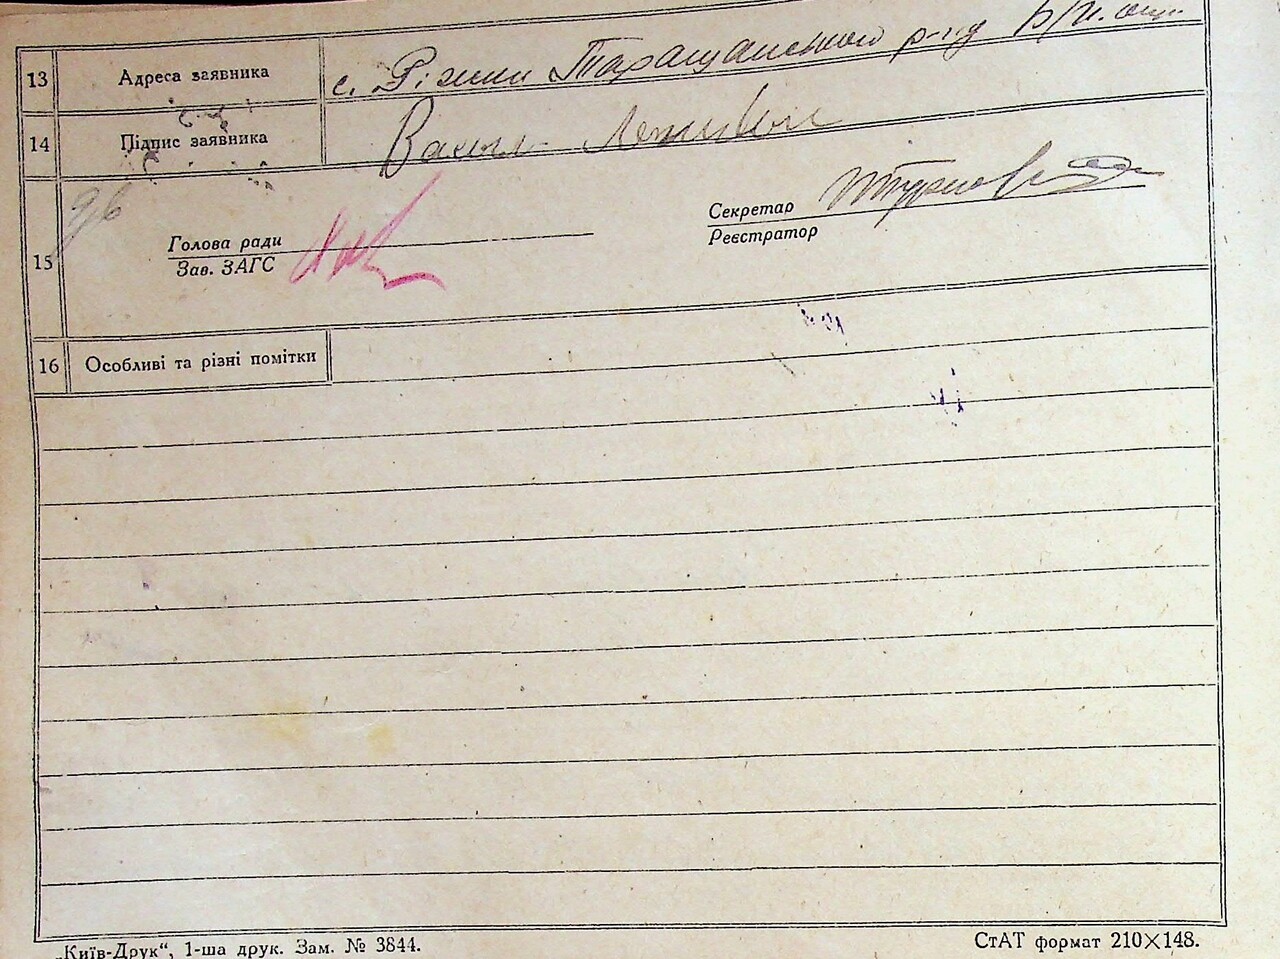 13 Адреса заявника с. Ріжки Таращанського р-ну
14 Підпис заявника Василь
15 Голова ради
Зав. ЗАГС
Секретар
Реєстратор
16 Особливі та різні помітки
„Київ-Друк“, 1-ша друк. Зам. № 3844.
СтАТ формат 210×148.